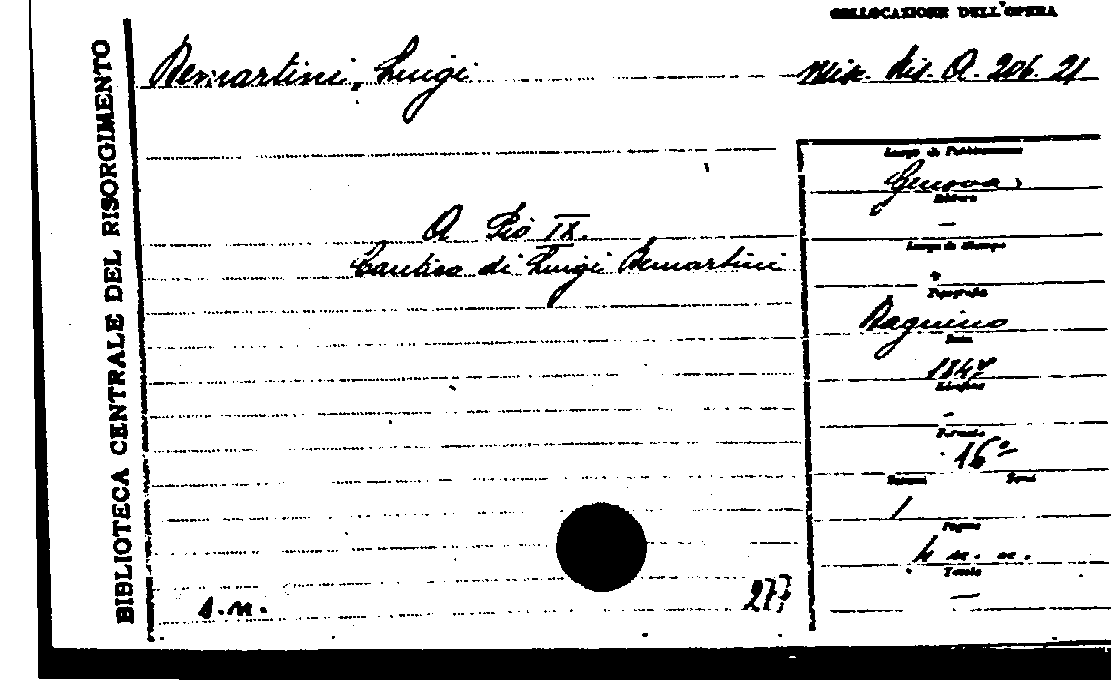 COLLOCAZIONE DELL'OPERA
BIBLIOTECA CENTRALE DEL RISORGIMENTO
Bernartini, Luigi
Misc. Ris. A. 206. 21
A Pio IX.
Cantica di Luigi Bernartini
Luogo di Pubblicazione
Genova
Editore
—
Luogo di Stampa
Tipografia
Data
1847
Edizione
-
Formato
16°
Volumi Tomi
1
Pagine
4 n. n.
Tavole
—
s.n.
277